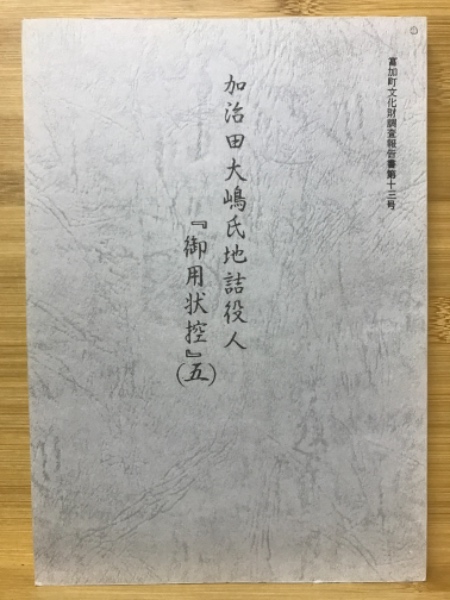 富加町文化財調査報告書第十三号
加治田大嶋氏地詰役人
『御用状控』(五)